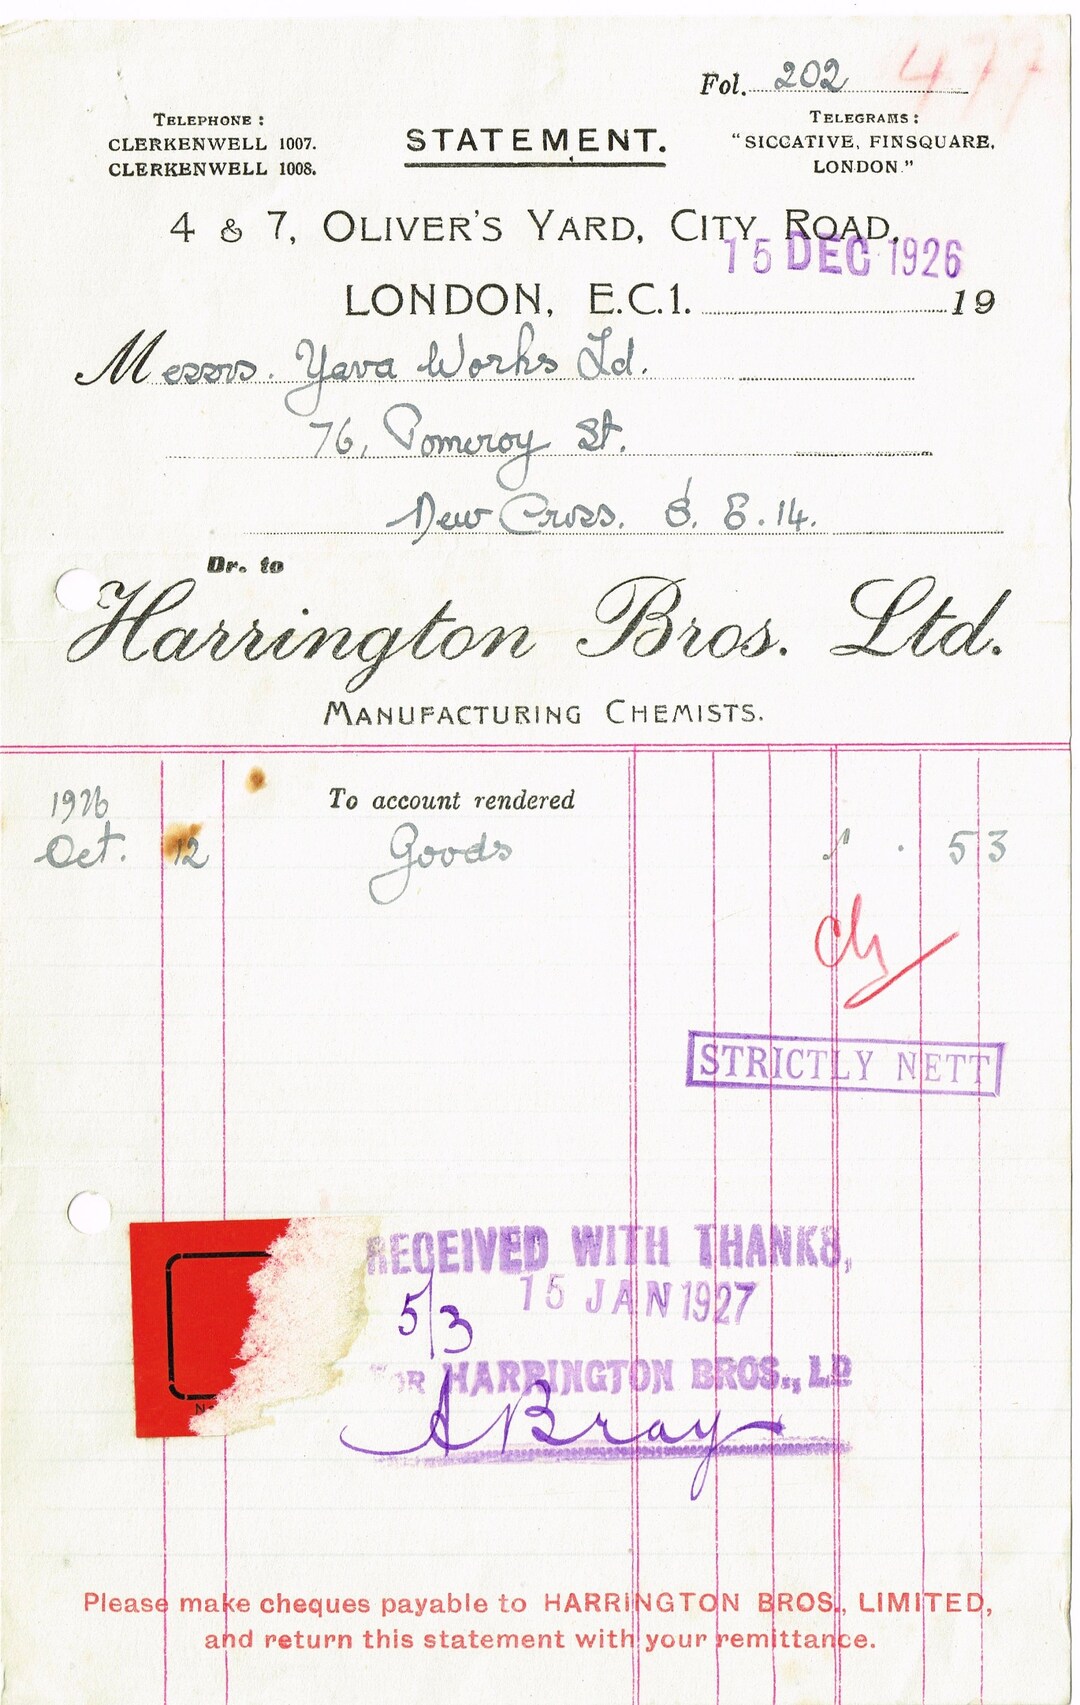 Fol. 202 477
TELEPHONE:
CLERKENWELL 1007.
CLERKENWELL 1008.
STATEMENT.
TELEGRAMS:
"SICCATIVE, FINSQUARE,
LONDON."
4 & 7, OLIVER'S YARD, CITY ROAD,
15 DEC 1926
LONDON, E.C.1. 19
Messrs. Yava Works Ld.
76, Pomeroy St.
New Cross. S. E. 14.
Dr. to
Harrington Bros. Ltd.
MANUFACTURING CHEMISTS.
1926
To account rendered
Oct. 12 Goods 5 3
STRICTLY NETT
RECEIVED WITH THANKS,
15 JAN 1927
5/3
FOR HARRINGTON BROS., LD
A Bray
Please make cheques payable to HARRINGTON BROS., LIMITED,
and return this statement with your remittance.